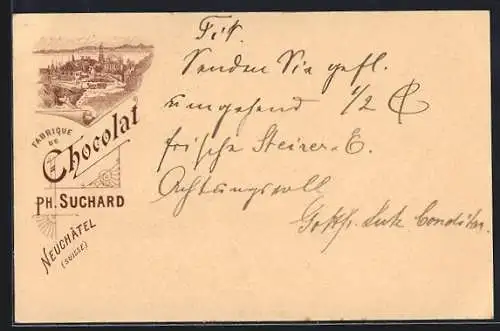 FABRIQUE
DE
Chocolat
PH. SUCHARD
NEUCHÂTEL
(SUISSE)
Senden Sie gefl.
umgehend 1/2
frische Steirer-E.
Achtungsvoll
Gottfr. Conditor